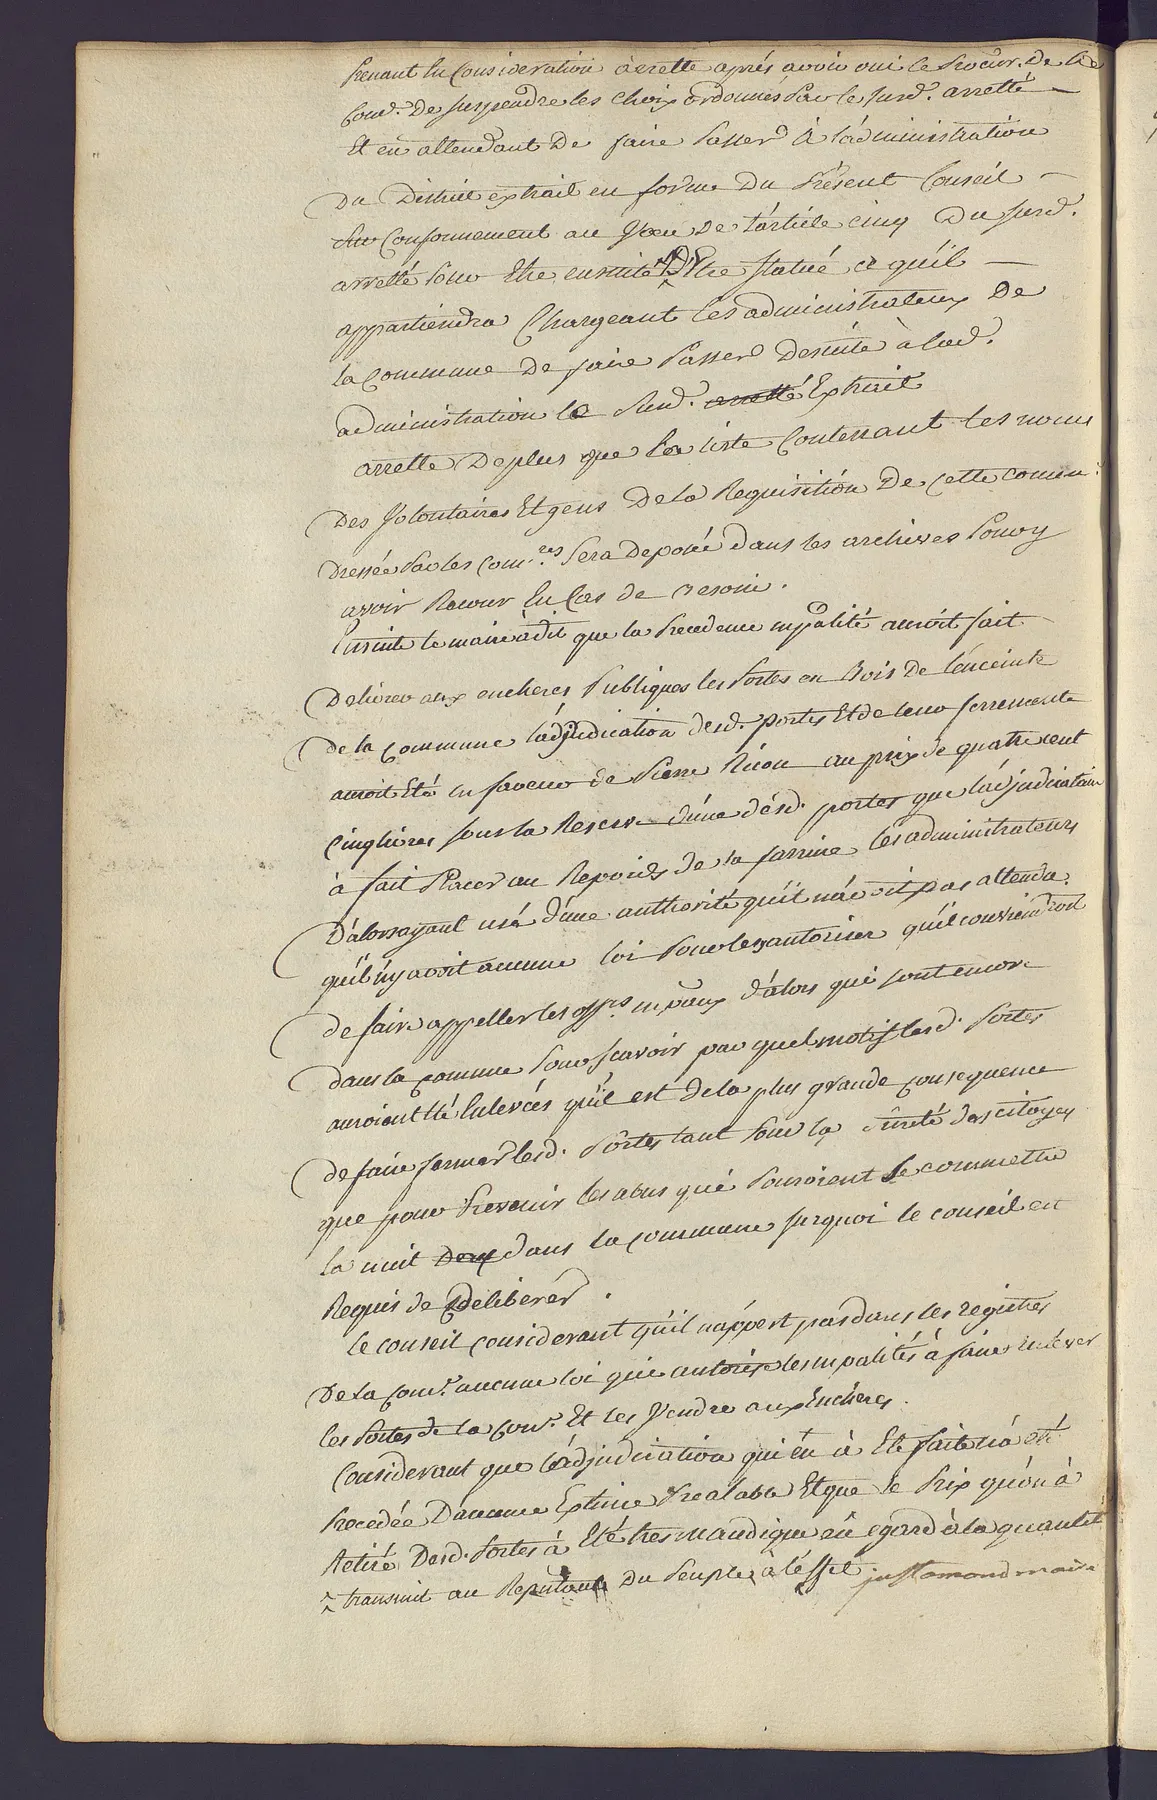 Prenant En Consideration à arretté aprés avoir oui le Procur. De la
Com.e De suspendre les choix ordonnés Par le susd. arretté —
Et en attendant De faire Passer à l'administration
Du District extrait en forme Du Présent Conseil —
Conformement au Vœu De l'article cinq Du susd.
arretté Pour Etre ensuite Etre statué ce qu'il —
appartiendra Chargeant les administrateurs De
la Commune De faire Passer Desuite à lad.
administration le Susd. arretté Extrait
arrette Deplus que la liste Contenant les noms
Des Volontaires Et gens De la Requisition De Cette comm.
Dressée Par les Com.res Sera Deposée Dans les archives Pour y
avoir Recour En Cas de Besoin.
Ensuite le maire à dit que la Precedente mpalité auroit fait
Delivrer aux encheres Publiques les Portes en Bois de l'enceinte
de la Commune l'adjudication desd. portes Et de leur ferremente
auroit Eté en faveur de Pierre au prix de quatre cent
Cinq livres sous la Reserve d'une desd. portes que l'adjudicataire
à fait Placer au Repoids de la farine les administrateurs
D'alors ayant usé d'une authorité qu'il n'avoit pas attendu
qu'il n'y avoit aucune loi Pour les autoriser qu'il conviendroit
de faire appeller les off.rs mpaux d'alors qui sont encore
dans la commune Pour scavoir par quel motif lesd. Portes
auroient Eté Enlevées qu'il est De la plus grande consequence
de faire fermer lesd. Portes tant Pour la sûreté des citoyens
que pour Prevenir les abus qui Pouroient se commettre
la nuit dans la commune surquoi le conseil est
Requis de Deliberer.
Le conseil considerant qu'il n'appert pas dans les registres
De la Com.e aucune loi qui autorise les mpalités à faire enlever
les Portes de la Com.e Et les Vendre aux Encheres.
Considerant que l'adjudication qui en à Eté faite n'a été
Precedée D'aucune Extime Prealable Et que le Prix qu'on à
Retiré Desd. Portes à Eté tres modique eu egard à la quantité
transmit au Du Peuple à l'effet justamond maire